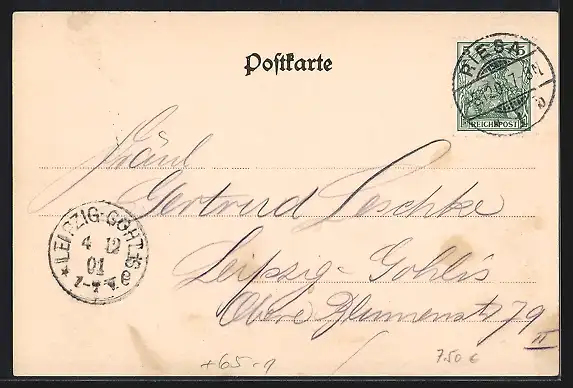 5 5
Postkarte
RIESA
REICHSPOST
Fräul
Gertrud Leschke
LEIPZIG-GOHLIS
4 12
01
7-8 V.
e
Leipzig-Gohlis
Obere Blumenstr 79
II
+65-9
7.50 €